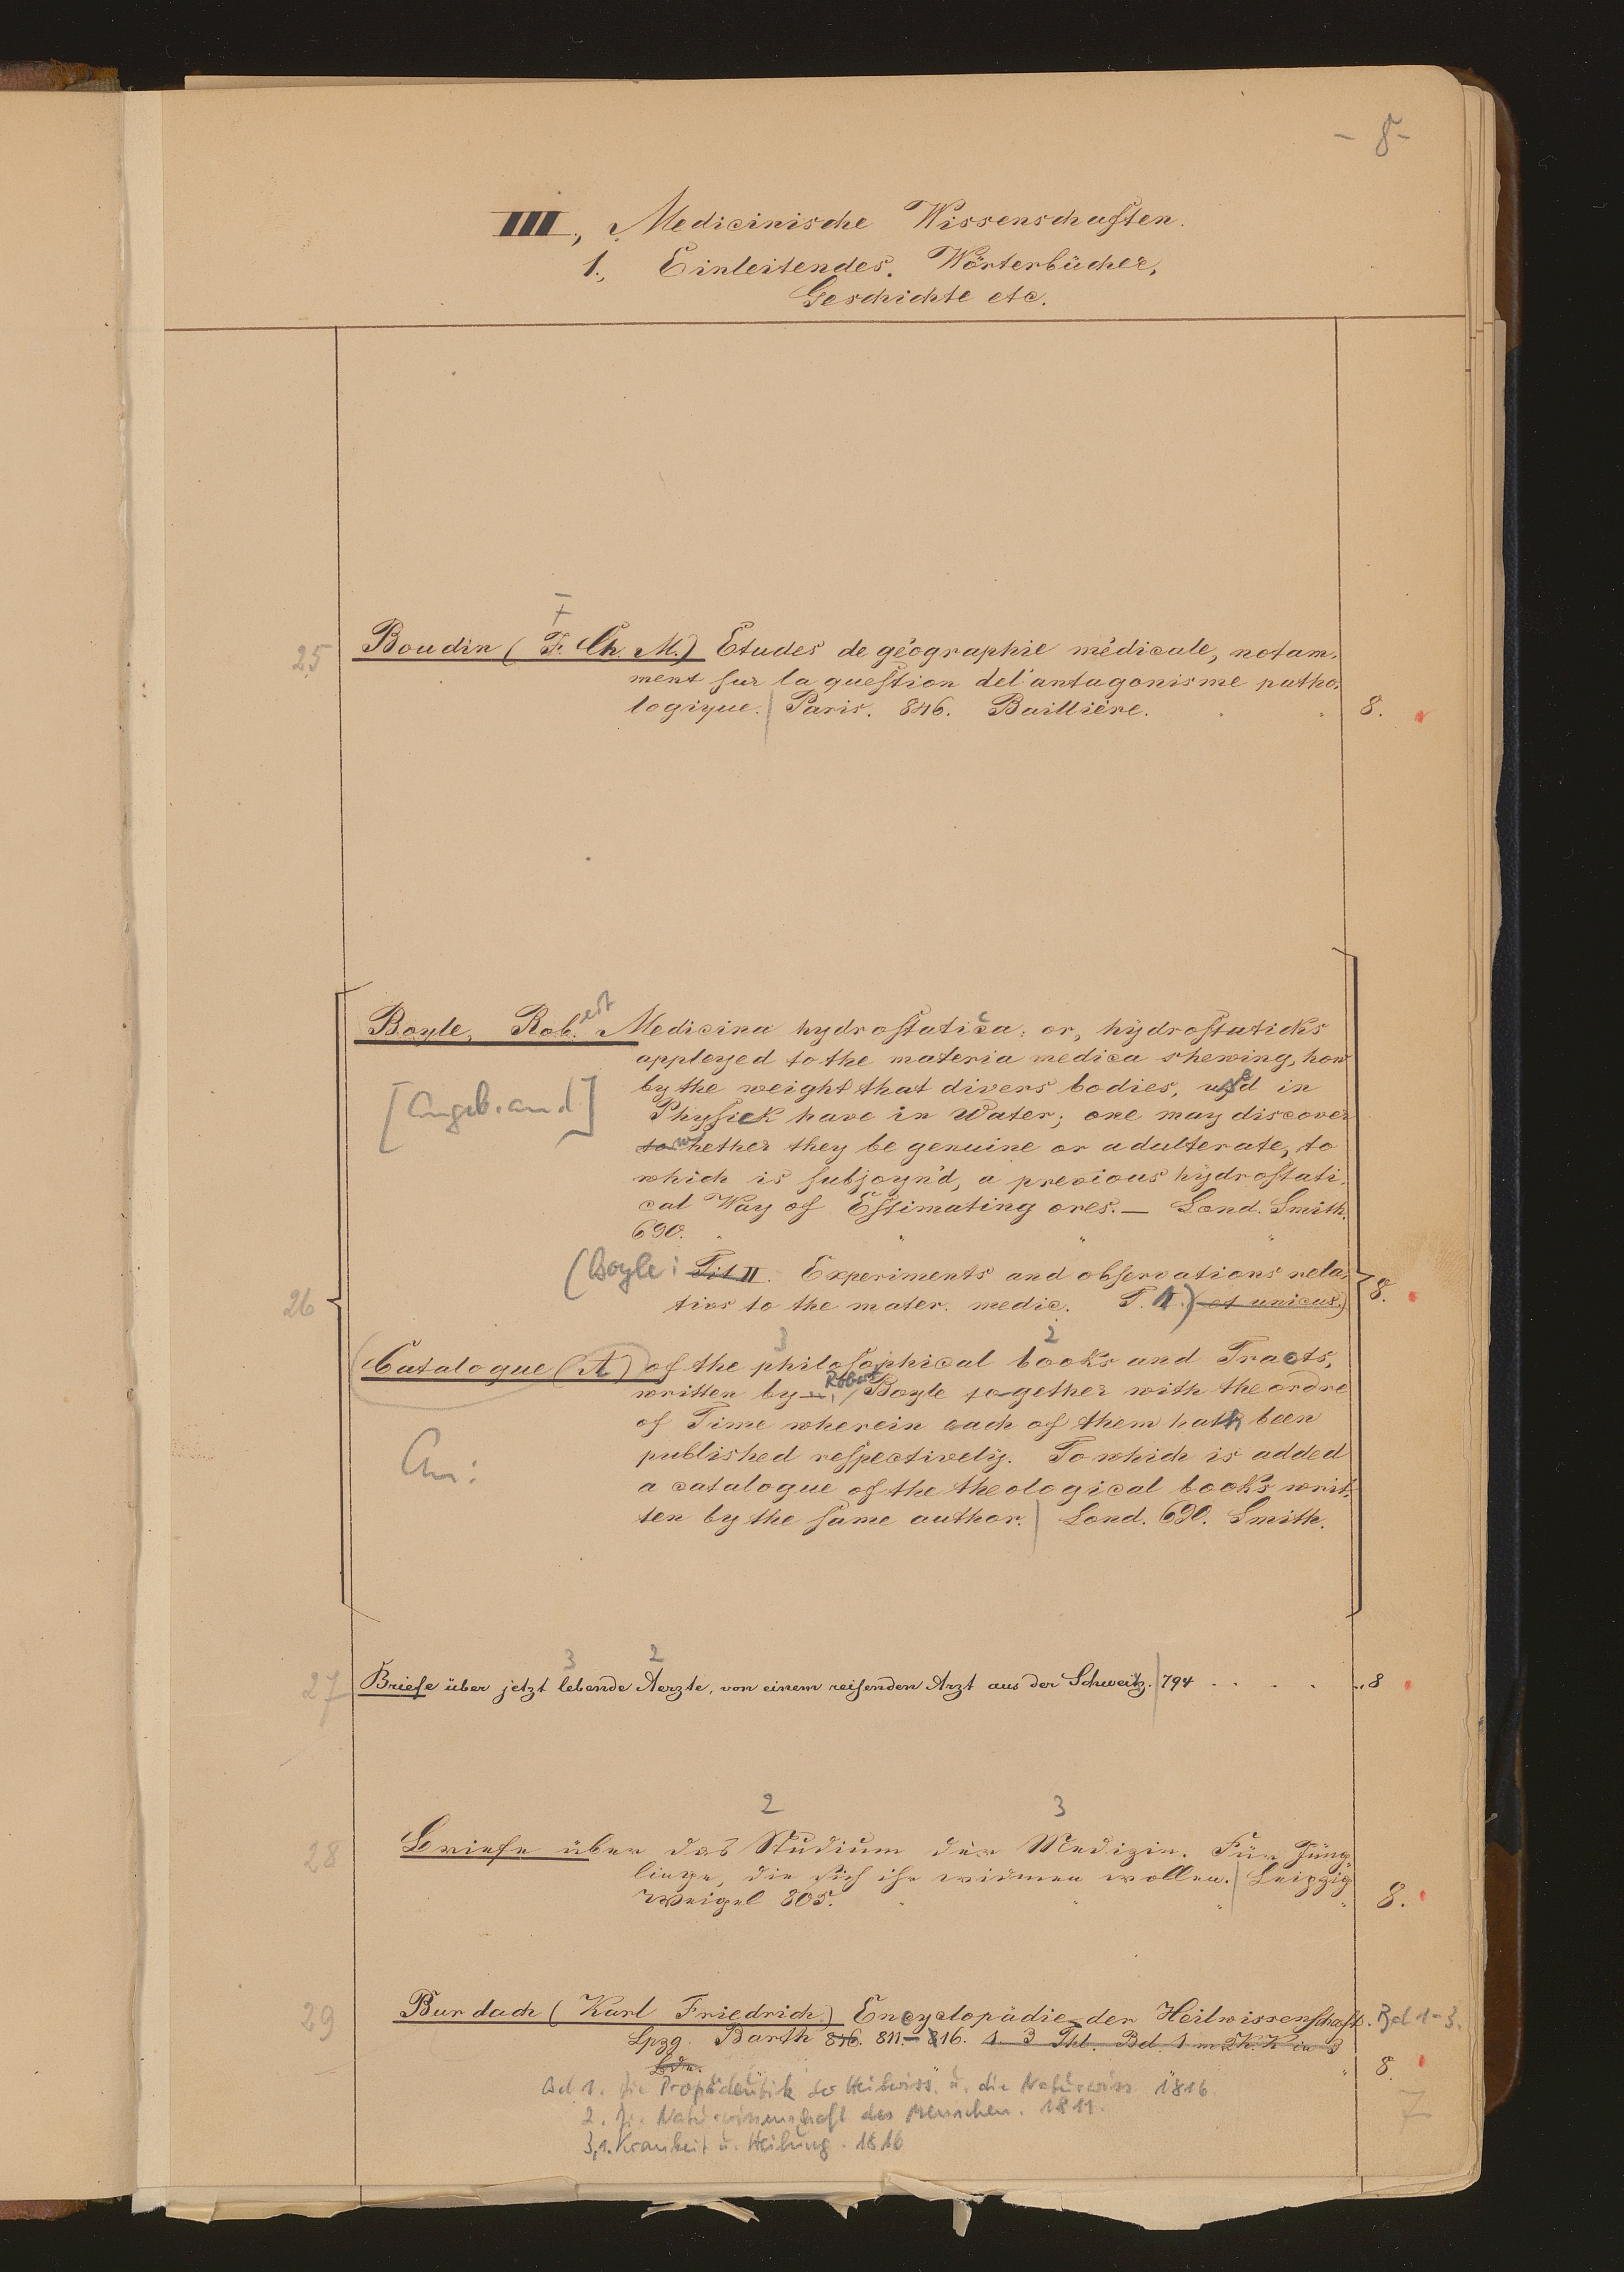 - 8 -
III., Medicinische Wissenschaften.
1., Einleitendes. Wörterbücher,
Geschichte etc.
25 Boudin (F. Ch. M.) Etudes de géographie médicale, notam-
ment sur la question de l'antagonisme patho-
logique. | Paris. 846. Baillière. 8.
Boyle, Rob. ert Medicina hydrostatica: or, hydrostaticks
applyed to the materia medica shewing, how
by the weight that divers bodies, us'd in
[Angeb. an d]
Physick have in Water; one may discover
to whether they be genuine or adulterate, to
which is subjoyn'd, a previous hydrostati-
cal Way of Estimating ores. — Lond. Smith.
690.
(Boyle: Tit II. Experiments and observations rela-
26 tios to the mater. medic. T. 1.) et unicus.) 8.
3 2
Catalogue (A) of the philosophical books and Tracts,
written by Robert Boyle together with the ordre
of Time wherein each of them hath been
An:
published respectively. To which is added
a catalogue of the theological books writ-
ten by the same author. | Lond. 690. Smith.
3 2
27 Briefe über jetzt lebende Aerzte, von einem reisenden Arzt aus der Schweitz. | 794 . . . . . 8
2 3
28 Briefe über das Studium der Medizin. Für Jüng-
linge, die sich ihr widmen wollen. | Leipzig
Weigel 805. 8.
29 Burdach (Karl Friedrich) Encyclopädie der Heilwissenschaft. Bd 1-3.
Lpzg. Barth 816. 811.— 816. 1. 3 Thl. Bd. 1 in 3
Bdn. 8.
Bd 1. Die Propädeutik der Heilwiss. u. die Naturwiss 1816.
2. Die Naturwissenschaft des Menschen. 1811.
3,1. Krankheit u. Heilung. 1816
7